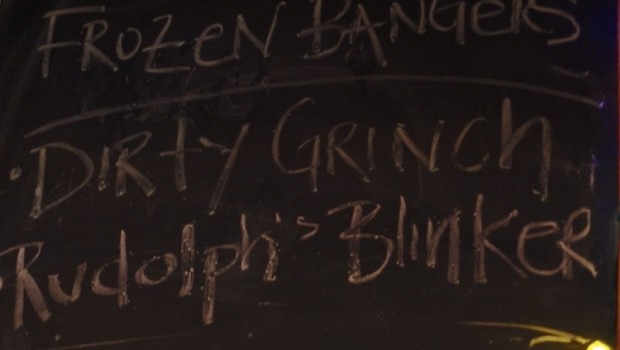 FROZEN BANGERS
· DIRTY GRINCH
· Rudolph's Blinker